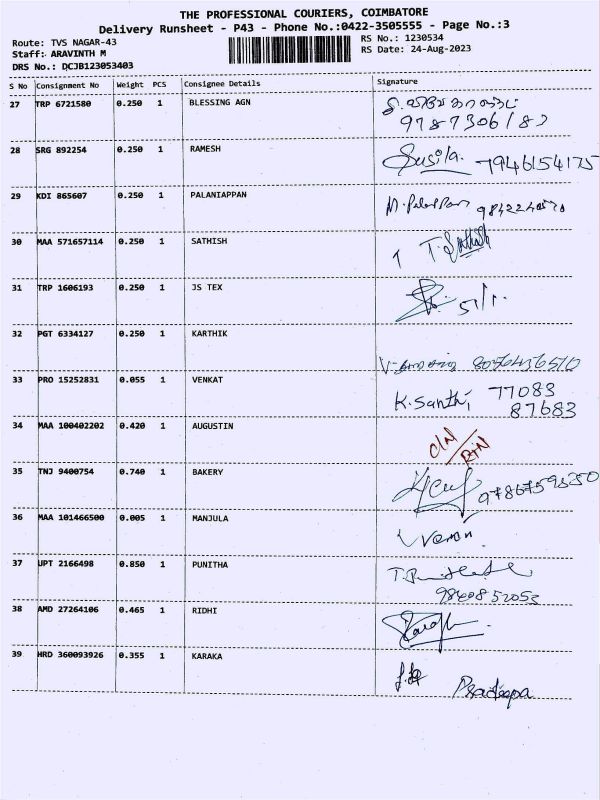 THE PROFESSIONAL COURIERS, COIMBATORE
Delivery Runsheet - P43 - Phone No.:0422-3505555 - Page No.:3
Route: TVS NAGAR-43 RS No.: 1230534
Staff: ARAVINTH M RS Date: 24-Aug-2023
DRS No.: DCJB123053403
S No Consignment No Weight PCS Consignee Details Signature
27 TRP 6721580 0.250 1 BLESSING AGN
28 SRG 892254 0.250 1 RAMESH Susila. 7946154175
29 KDI 865607 0.250 1 PALANIAPPAN
30 MAA 571657114 0.250 1 SATHISH T. Sathish
31 TRP 1606193 0.250 1 JS TEX
32 PGT 6334127 0.250 1 KARTHIK
33 PRO 15252831 0.055 1 VENKAT K. Santhi, 77083
87683
34 MAA 100402202 0.420 1 AUGUSTIN
35 TNJ 9400754 0.740 1 BAKERY
36 MAA 101466500 0.005 1 MANJULA
37 UPT 2166498 0.850 1 PUNITHA
9840852053
38 AMD 27264106 0.465 1 RIDHI
39 HRD 360093926 0.355 1 KARAKA Pradeepa